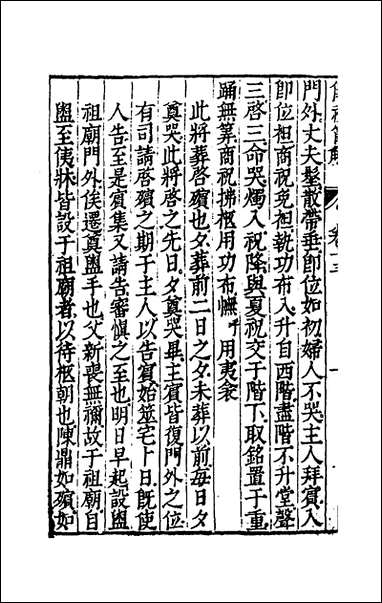 門外丈夫髽散帶垂卽位如初婦人不哭主人拜賓入
卽位袒商祝免袒執功布入升自西階盡階不升堂聲
三啓三命哭燭入祝降與夏祝交于階下取銘置于重
踊無筭商祝拂柩用功布幠用夷衾
此將葬啓殯也夕葬前二日之夕未葬以前每日夕
奠哭此將啓之先日夕奠哭畢主賓皆復門外之位
有司請啓殯之期于主人以告賓始筮宅卜日旣使
人告至是賓集又請告審愼之至也明日早起設盥
祖廟門外俟遷奠盥手也父新喪無禰故于祖廟自
盥至侇牀皆設于祖廟者以待柩朝也陳鼎如殯如